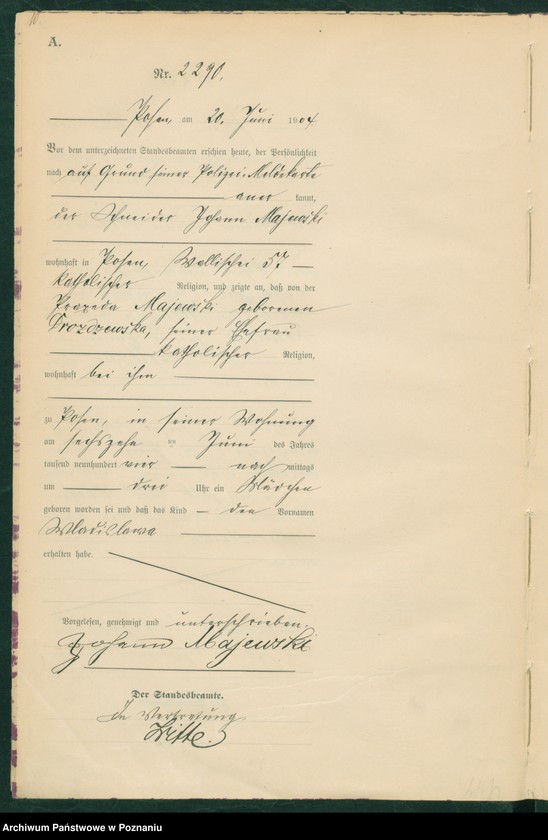 10
A.
Nr. 2290.
Posen, am 20. Juni 1904
Vor dem unterzeichneten Standesbeamten erschien heute, der Persönlichkeit
nach auf Grund seiner Polizei-Meldekarte
aner kannt,
der Schneider Johann Majewski
wohnhaft in Posen, Wallischei 57
katholischer Religion, und zeigte an, daß von der
Praxeda Majewski geborenen
Drozdzewska, seiner Ehefrau
katholischer Religion,
wohnhaft bei ihm
zu Posen, in seiner Wohnung
am sechszehn ten Juni des Jahres
tausend neunhundert vier nach mittags
um drei Uhr ein Mädchen
geboren worden sei und daß das Kind den Vornamen
Wladislawa
erhalten habe.
Vorgelesen, genehmigt und unterschrieben.
Johann Majewski
Der Standesbeamte.
In Vertretung.
Witte.
Archiwum Państwowe w Poznaniu